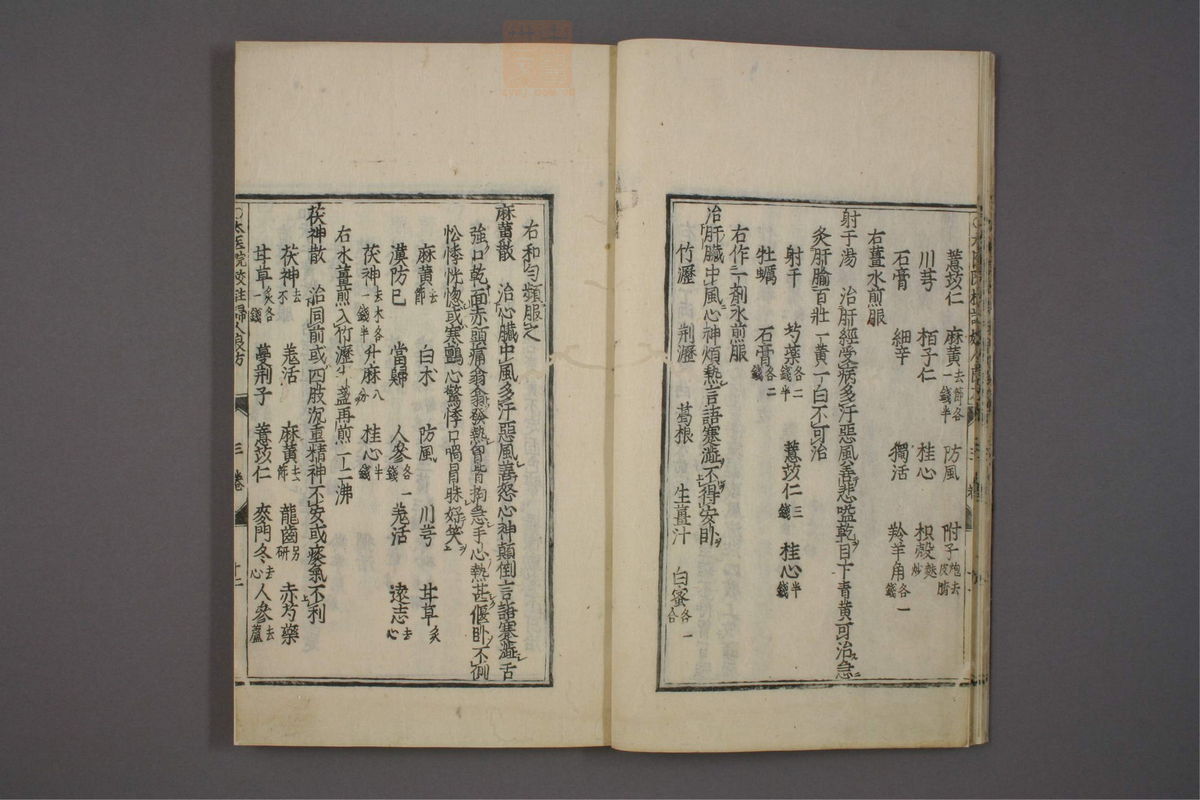 薏苡仁 麻黄去節各一錢半 防風 附子炮去皮臍
川芎 栢子仁 桂心 枳殻麩炒
石膏 細辛 獨活 羚羊角各一錢
右薑水煎服
射干湯 治肝經受病多汗惡風善悲嗌乾目下青黄可治急
灸肝腧百壯一黄一白不可治
射干 芍薬各二錢半 薏苡仁三錢 桂心半錢
牡蠣 石膏各二錢
右作一剤水煎服
治肝臓中風心神煩熱言語蹇澁不得安卧
竹瀝 荆瀝 葛根 生薑汁 白蜜各一合
右和匀頻服之
麻黄散 治心臓中風多汗惡風善怒心神顛倒言語蹇澁舌
強口乾面赤頭痛翕翕發熱胷背拘急手心熱甚偃卧不側
忪悸恍惚或寒顫心驚悸口喎冒昧好笑
麻黄去節 白术 防風 川芎 甘草炙
漢防已 當歸 人參各一錢 羗活 遠志去心
茯神去木各一錢半 升麻八分 桂心半錢
右水薑煎入竹瀝少盞再煎一二沸
茯神散 治同前或四肢沉重精神不安或痰氣不利
茯神去 羗活 麻黄去節 龍齒另研 赤芍藥
甘草炙各一錢 蔓荆子 薏苡仁 麥門冬去心 人參去蘆
○太医院校註婦人良方 三卷 十二